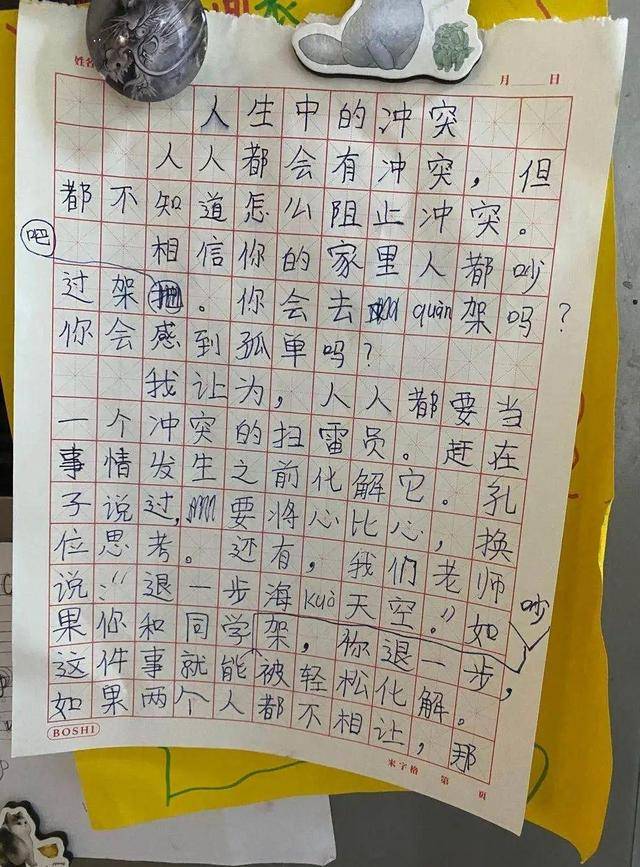 姓名
月 日
人生中的冲突
人人都会有冲突，但
都不知道怎么阻止冲突。
相信你的家里人都吵
过架吧。你会去quàn架吗？
你会感到孤单吗？
我让为，人人都要当
一个冲突的扫雷员。赶在
事情发生之前化解它。孔
子说过，要将心比心，换
位思考。还有，我们老师
说：“退一步海kuò天空。”如
果你和同学吵架，你退一步，
这件事就能被轻松化解。
如果两个人都不相让，那
BOSHI
米字格 第 页